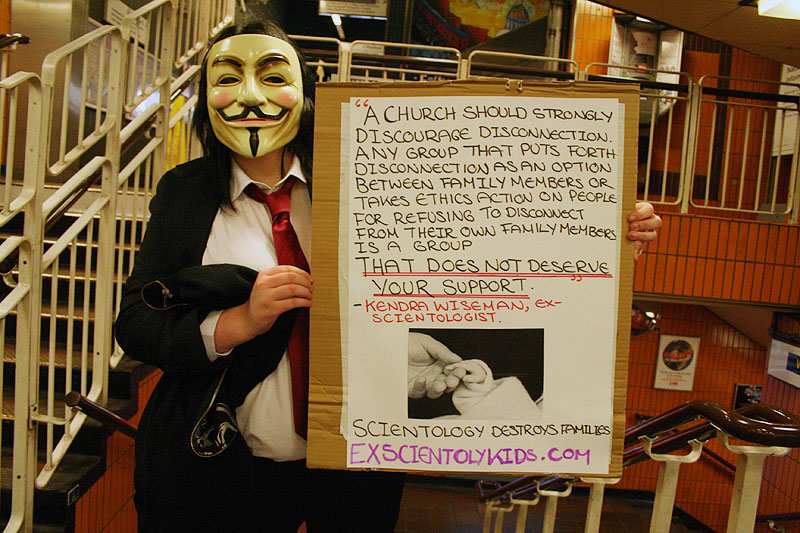 "A CHURCH SHOULD STRONGLY
DISCOURAGE DISCONNECTION.
ANY GROUP THAT PUTS FORTH
DISCONNECTION AS AN OPTION
BETWEEN FAMILY MEMBERS OR
TAKES ETHICS ACTION ON PEOPLE
FOR REFUSING TO DISCONNECT
FROM THEIR OWN FAMILY MEMBERS
IS A GROUP
THAT DOES NOT DESERVE
YOUR SUPPORT."
-KENDRA WISEMAN, EX-
SCIENTOLOGIST.
SCIENTOLOGY DESTROYS FAMILIES
EXSCIENTOLYKIDS.COM